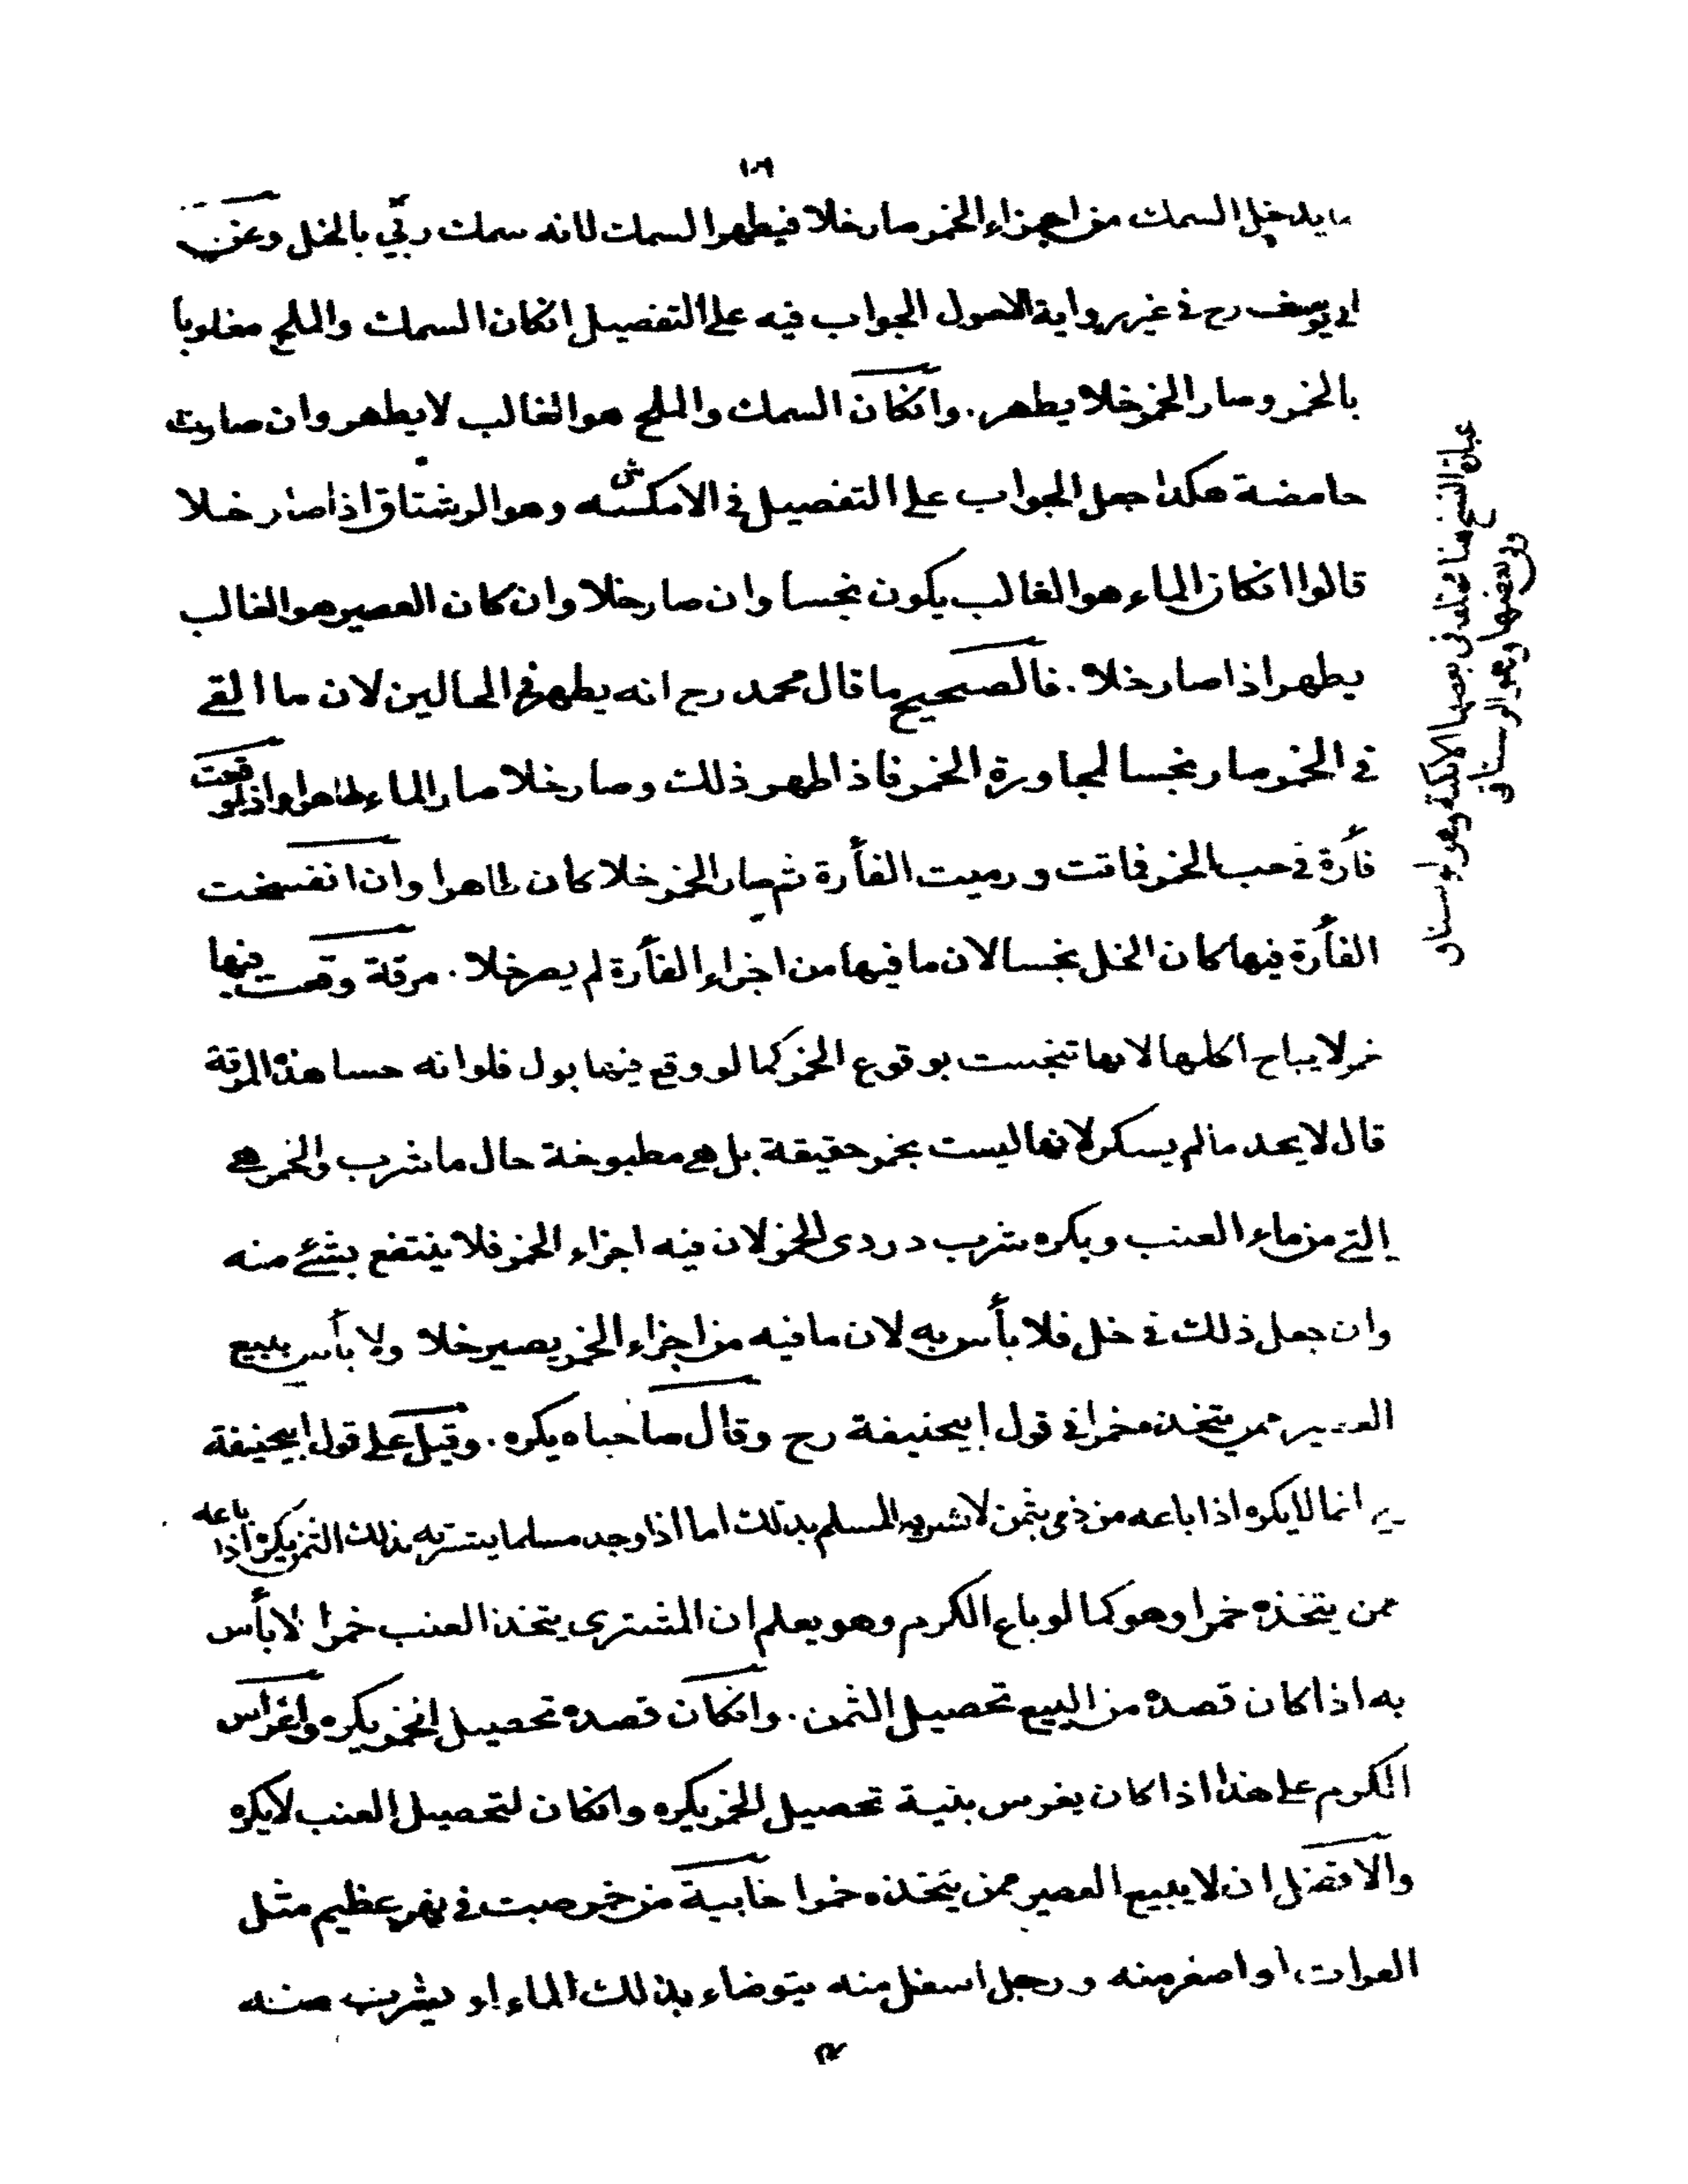 ١٠٦
ما يدخل السمك من اجزاء الخمر صار خلا فيطهر السمك لانه سمك ربي بالخل وعن
ابي يوسف رح في غير رواية الاصول الجواب فيه على التفصيل انكان السمك والملح مغلوبا
بالخمر وصار الخمر خلا يطهر. وانكان السمك والملح هو الغالب لا يطهر وان صارت
حامضة هكذا جعل الجواب على التفصيل في الامكسه وهو الرشتاق اذا صار خلا
قالوا انكان الماء هو الغالب يكون نجسا وان صار خلا وان كان العصير هو الغالب
يطهر اذا صار خلا. فالصحيح ما قال محمد رح انه يطهر في الحالين لان ما القي
في الخمر صار نجسا لمجاورة الخمر فاذا طهر ذلك وصار خلا صار الماء طاهرا واذا وقعت
فأرة في حب الخمر فماتت ورميت الفأرة ثم صار الخمر خلا كان طاهرا وان انفسخت
الفأرة فيها كان الخل نجسا لان ما فيها من اجزاء الفأرة لم يصر خلا. مرقة وقعت فيها
خمر لا يباح اكلها لانها تنجست بوقوع الخمر كما لو وقع فيها بول فلو انه حسا هذه المرقة
قال لا يحد ما لم يسكر لانها ليست بخمر حقيقة بل هي مطبوخة حال ما شرب والخمر هي
التي من ماء العنب ويكره شرب دردى الخمر لان فيه اجزاء الخمر فلا ينتفع بشئ منه
وان جعل ذلك في خل فلا بأس به لان ما فيه من اجزاء الخمر يصير خلا ولا بأس ببيع
العصير ممن يتخذه خمرا في قول ابيحنيفة رح وقال صاحباه يكره. وقيل على قول ابيحنيفة
رح انما لا يكره اذا باعه من ذمي بثمن لا يشتريه المسلم بذلك اما اذا وجد مسلما يشتريه بذلك الثمن يكره اذا باعه
ممن يتخذه خمرا وهو كما لو باع الكرم وهو يعلم ان المشترى يتخذ العنب خمرا لا بأس
به اذا كان قصده من البيع تحصيل الثمن. وانكان قصده تحصيل الخمر يكره وغراس
الكرم على هذا اذا كان يغرس بنية تحصيل الخمر يكره وانكان لتحصيل العنب لا يكره
والافضل ان لا يبيع العصير ممن يتخذه خمرا خابية من خمر صبت في نهر عظيم مثل
الفرات او اصغر منه ورجل اسفل منه يتوضاء بذلك الماء او يشرب منه
عبارة النسخ هنا مختلفة في بعضها الامكسه وهو
وفي بعضها وهو الرستاق